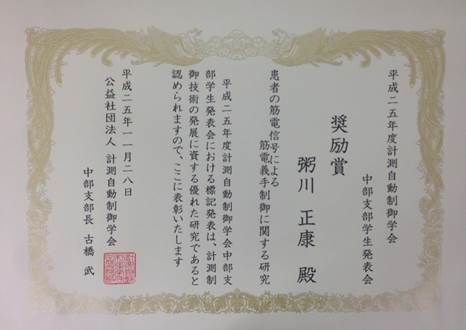 平成二五年度計測自動制御学会
中部支部学生発表会
奨励賞
粥川 正康 殿
患者の筋電信号による
筋電義手制御に関する研究
平成二五年度計測自動制御学会中部支
部学生発表会における標記発表は、計測制
御技術の発展に資する優れた研究であると
認められますので、ここに表彰いたします
平成二五年一一月二八日
公益社団法人 計測自動制御学会
中部支部長 古橋 武